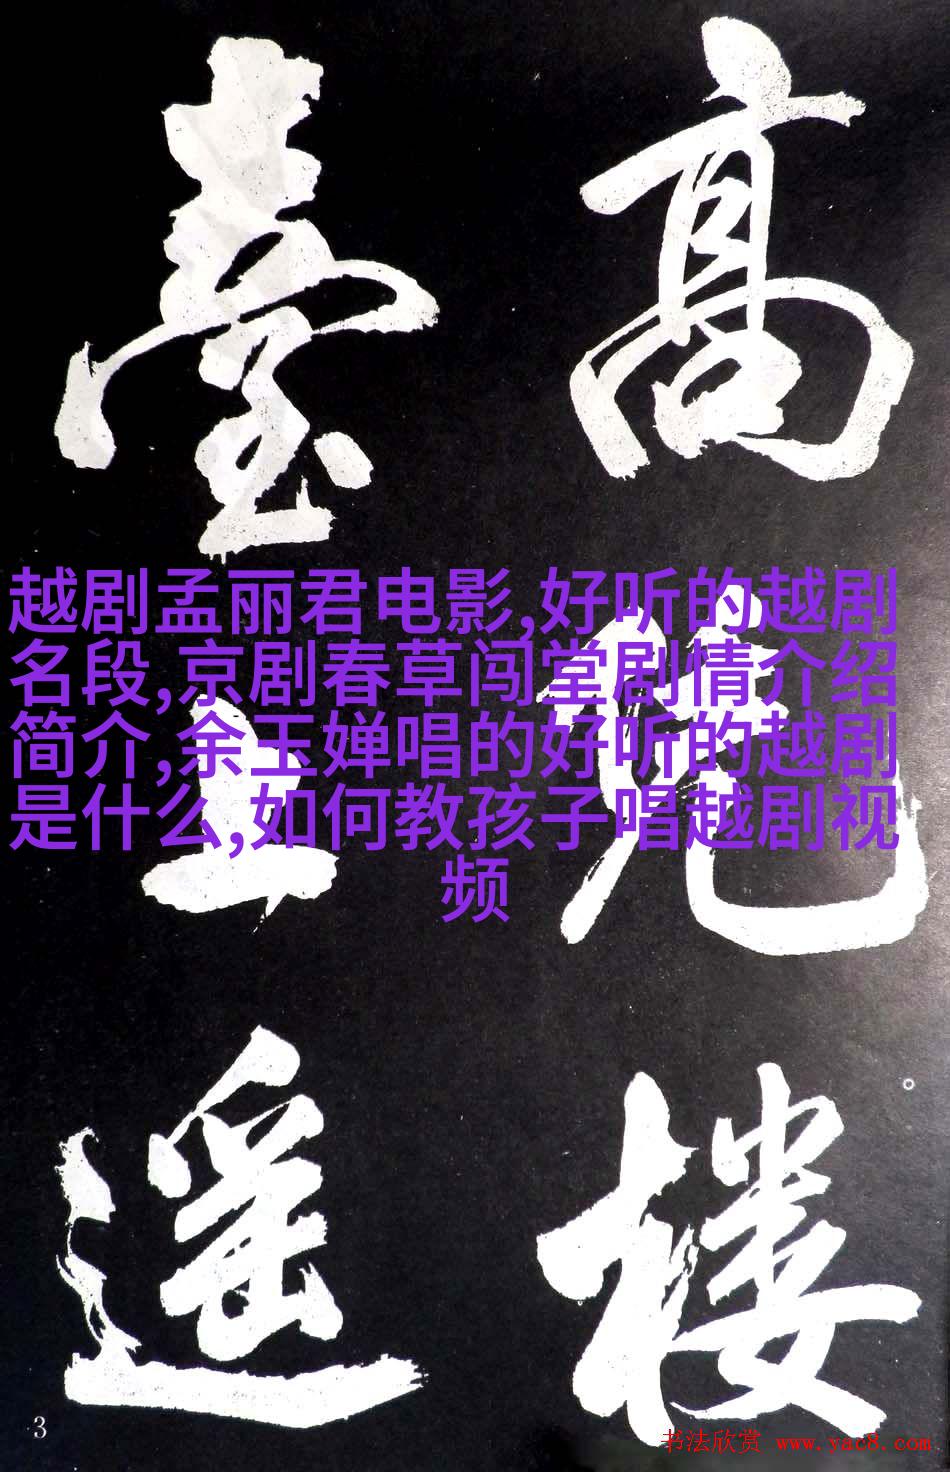 高楼
臺上遥
越剧孟丽君电影,好听的越剧
名段,京剧春草闯堂剧情介绍
简介,余玉婵唱的好听的越剧
是什么,如何教孩子唱越剧视
频
3
书法欣赏 www.yac8.com